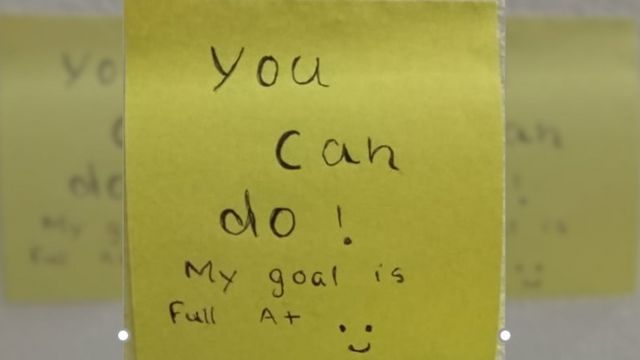 You
can
do!
My goal is
Full A+ :)